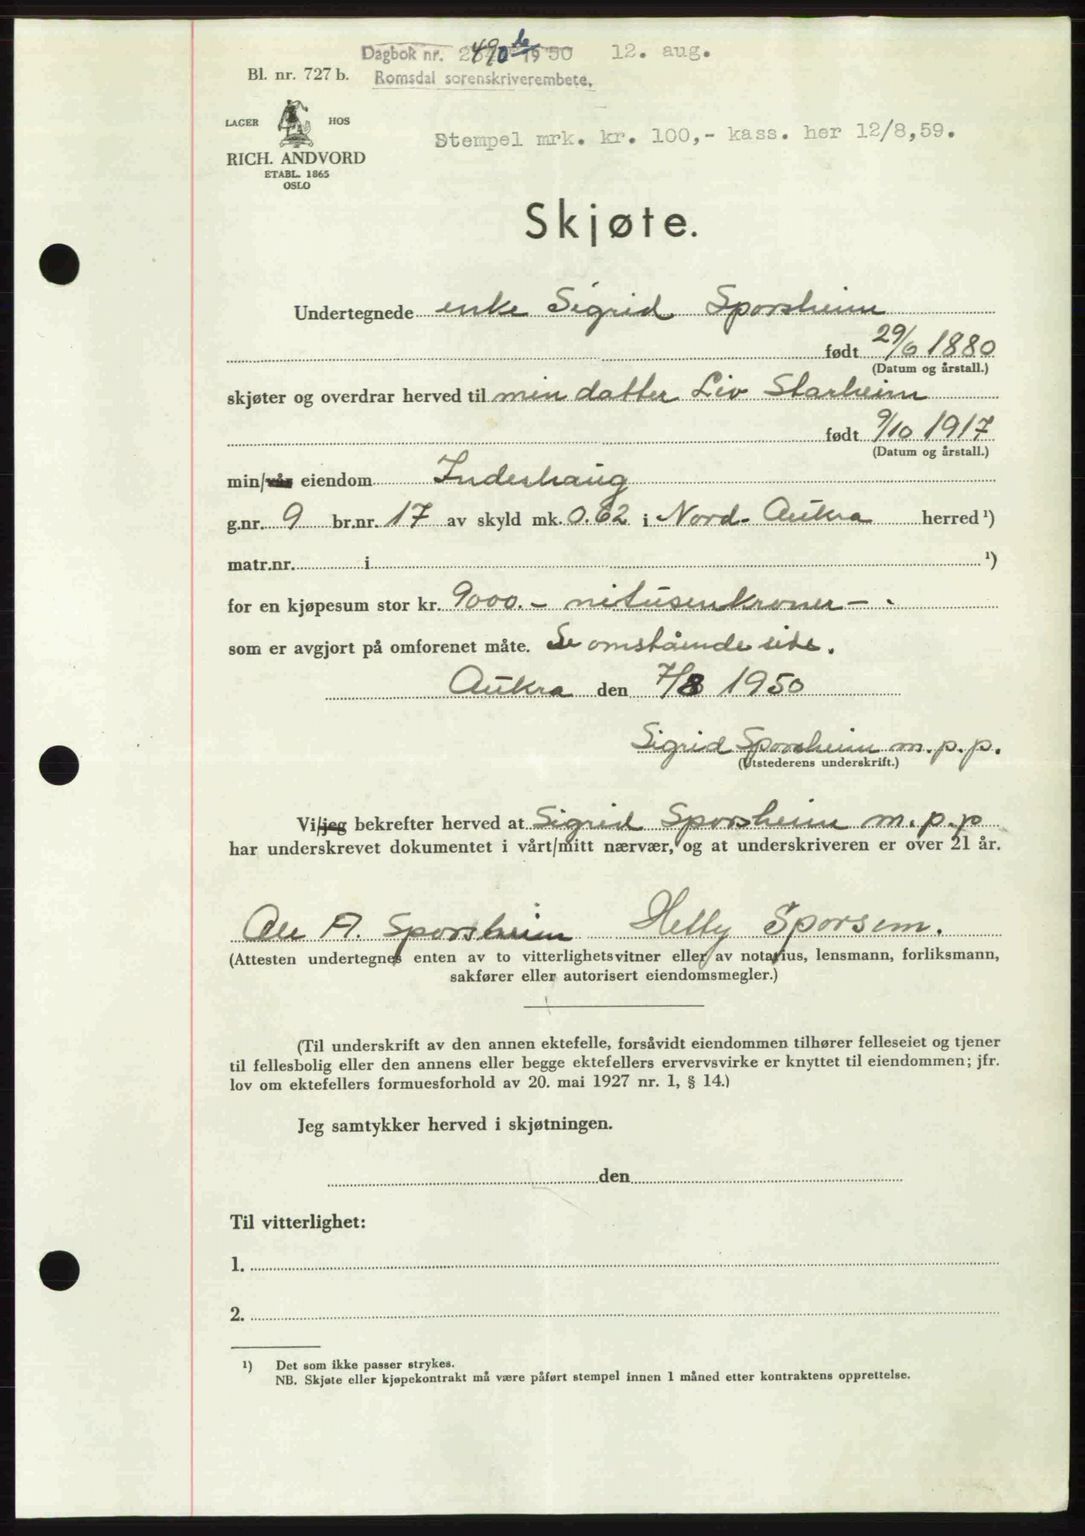 Dagbok nr. 2490 b 1950 12. aug.
Romsdal sorenskriverembete,
Bl. nr. 727 b.
LAGER HOS
RICH. ANDVORD
ETABL. 1865
OSLO
Stempel mrk. kr. 100,- kass. her 12/8,59.
Skjøte.
Undertegnede enke Sigrid Sporsheim
født 29/6 1880
(Datum og årstall.)
skjøter og overdrar herved til min datter Liv Starheim
født 9/10 1917
(Datum og årstall.)
min/vår eiendom Inderhaug
g.nr. 9 br.nr. 17 av skyld mk. 0.62 i Nord-Aukra herred ¹)
matr.nr. i ¹)
for en kjøpesum stor kr. 9000.- nitusenkroner -.
som er avgjort på omforenet måte. Se omstående side.
Aukra den 7/8 1950
Sigrid Sporsheim m.p.p.
(Utstederens underskrift.)
Vi/jeg bekrefter herved at Sigrid Sporsheim m.p.p
har underskrevet dokumentet i vårt/mitt nærvær, og at underskriveren er over 21 år.
Ole A. Sporsheim Helly Sporsem.
(Attesten undertegnes enten av to vitterlighetsvitner eller av notarius, lensmann, forliksmann,
sakfører eller autorisert eiendomsmegler.)
(Til underskrift av den annen ektefelle, forsåvidt eiendommen tilhører felleseiet og tjener
til fellesbolig eller den annens eller begge ektefellers ervervsvirke er knyttet til eiendommen; jfr.
lov om ektefellers formuesforhold av 20. mai 1927 nr. 1, § 14.)
Jeg samtykker herved i skjøtningen.
den
Til vitterlighet:
1.
2.
¹) Det som ikke passer strykes.
NB. Skjøte eller kjøpekontrakt må være påført stempel innen 1 måned etter kontraktens opprettelse.